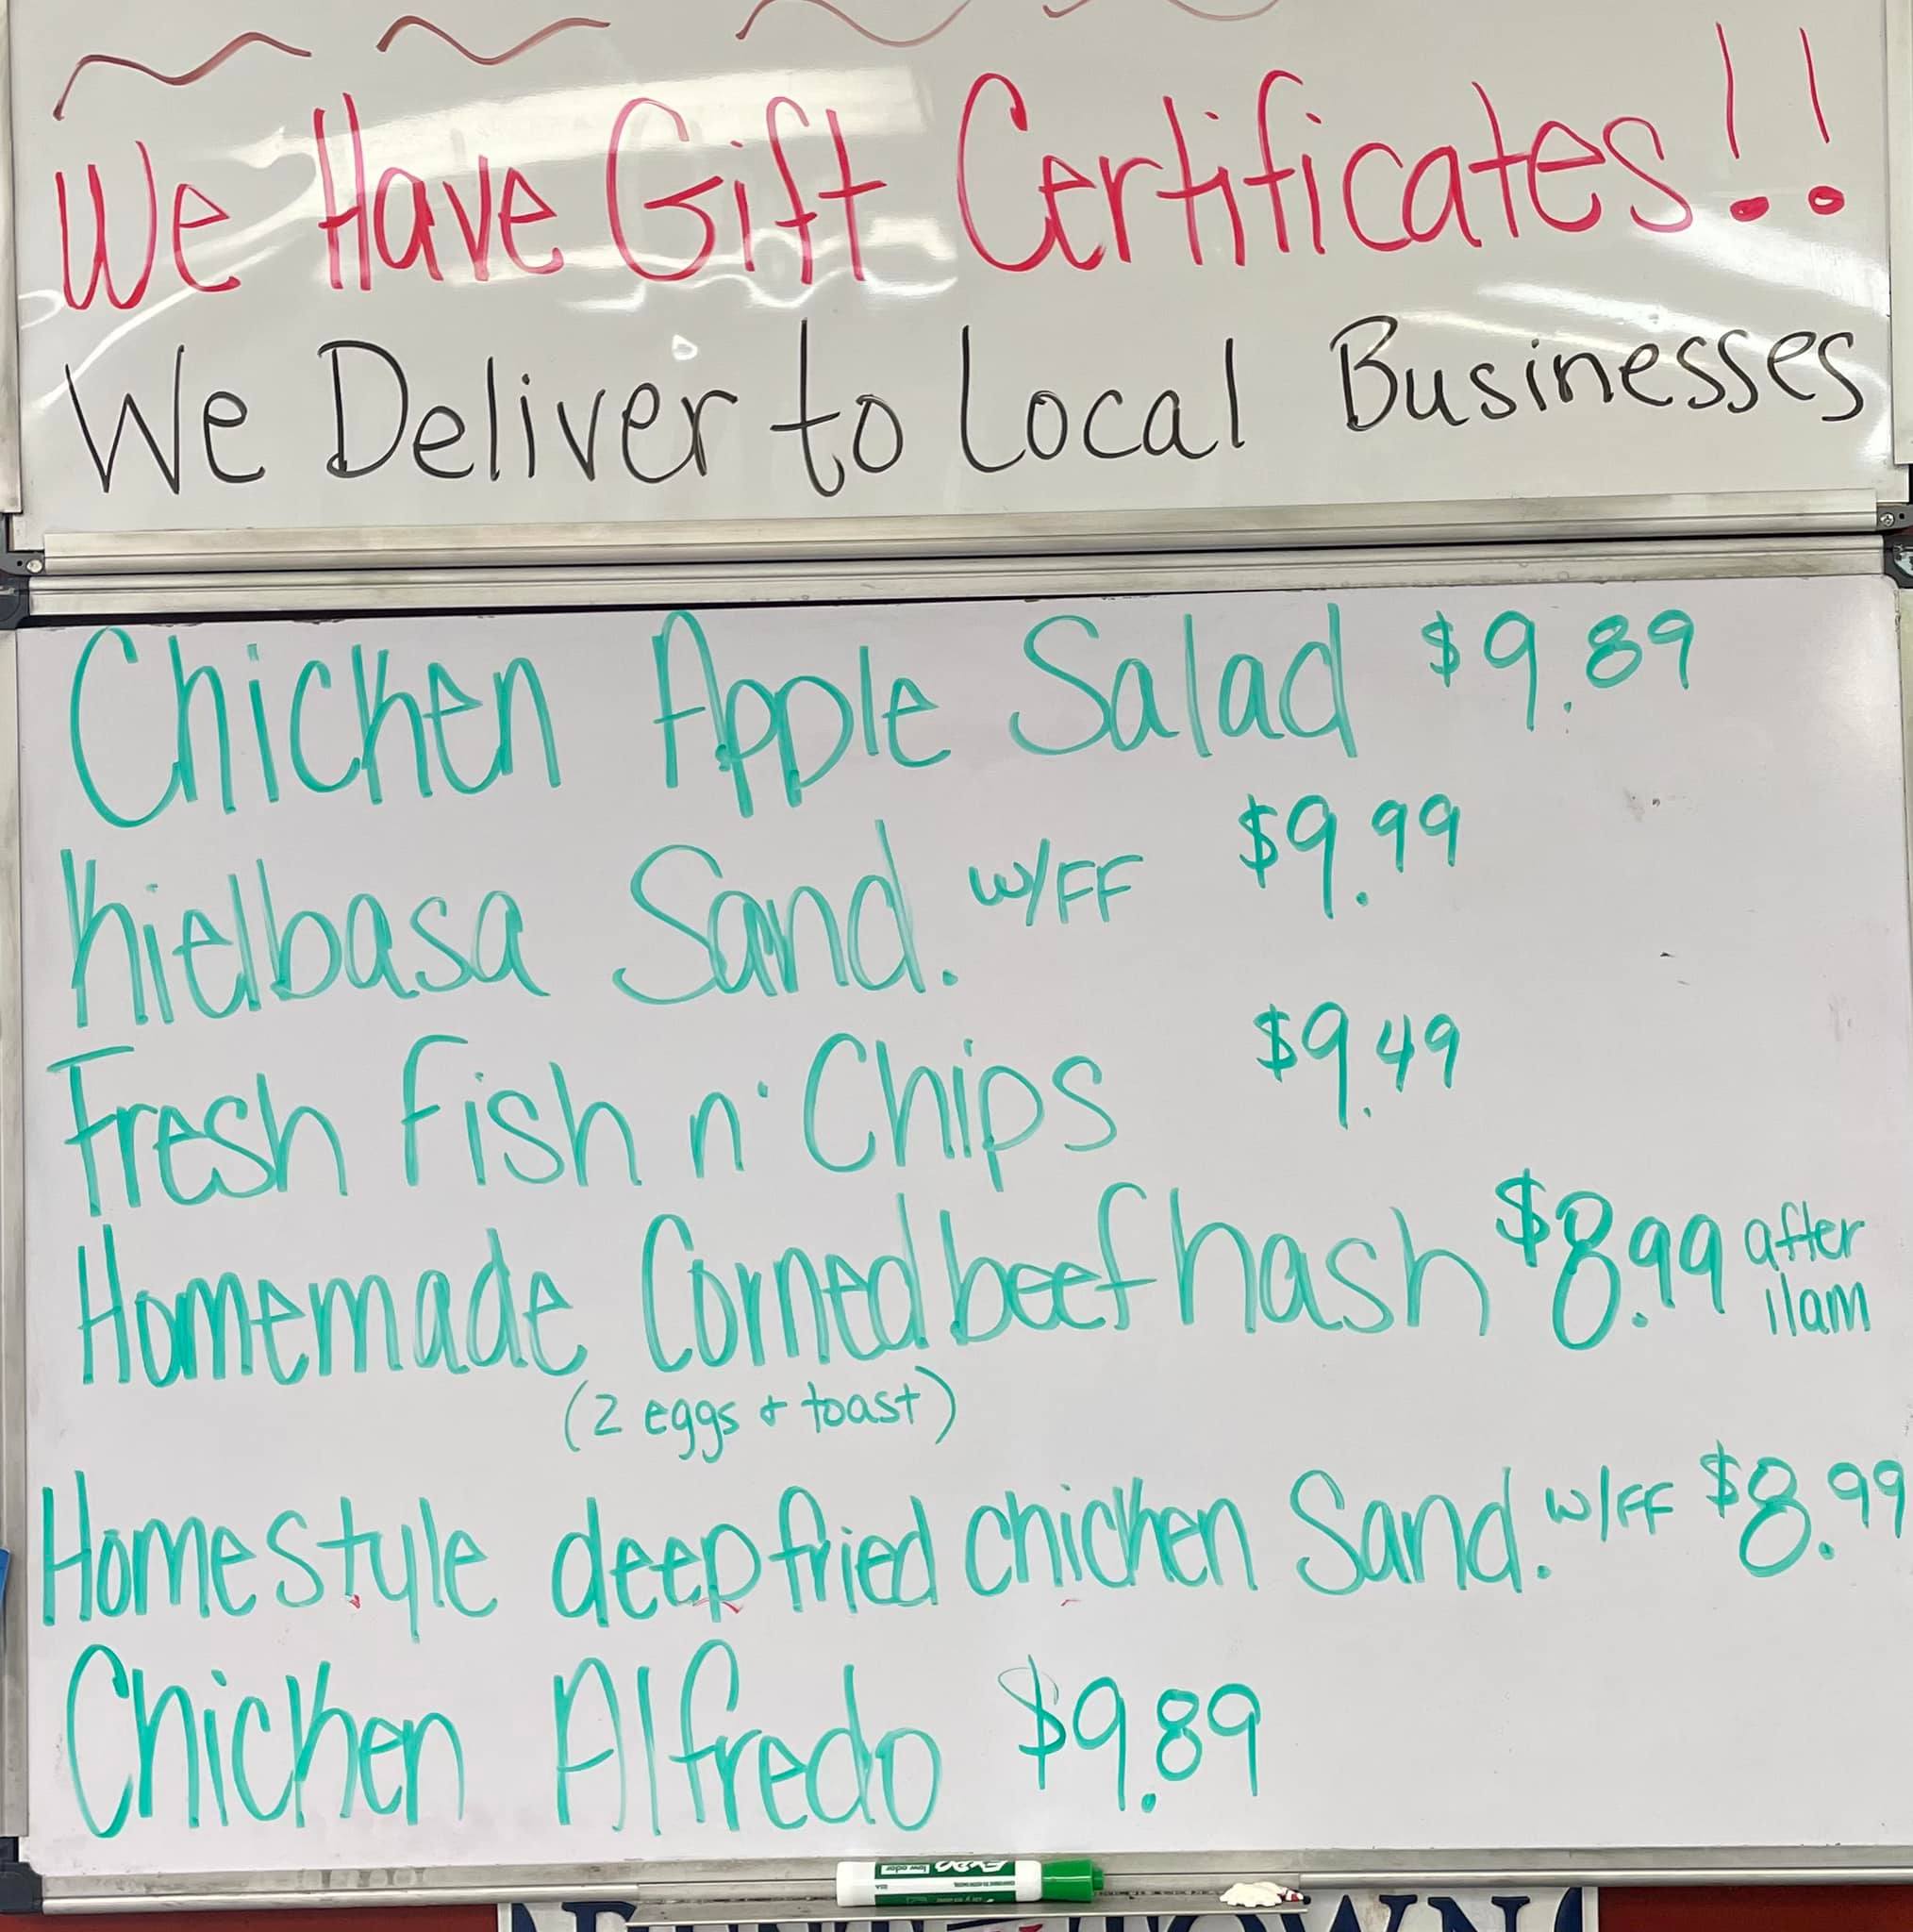 We Have Gift Certificates!!
We Deliver to Local Businesses
Chicken Apple Salad $9.89
Kielbasa Sand. w/FF $9.99
Fresh Fish n' Chips $9.49
Homemade Corned beef hash $8.99 after 11am
(2 eggs + toast)
Homestyle deep fried chicken Sand. w/FF $8.99
Chicken Alfredo $9.89
EXPO
low odor